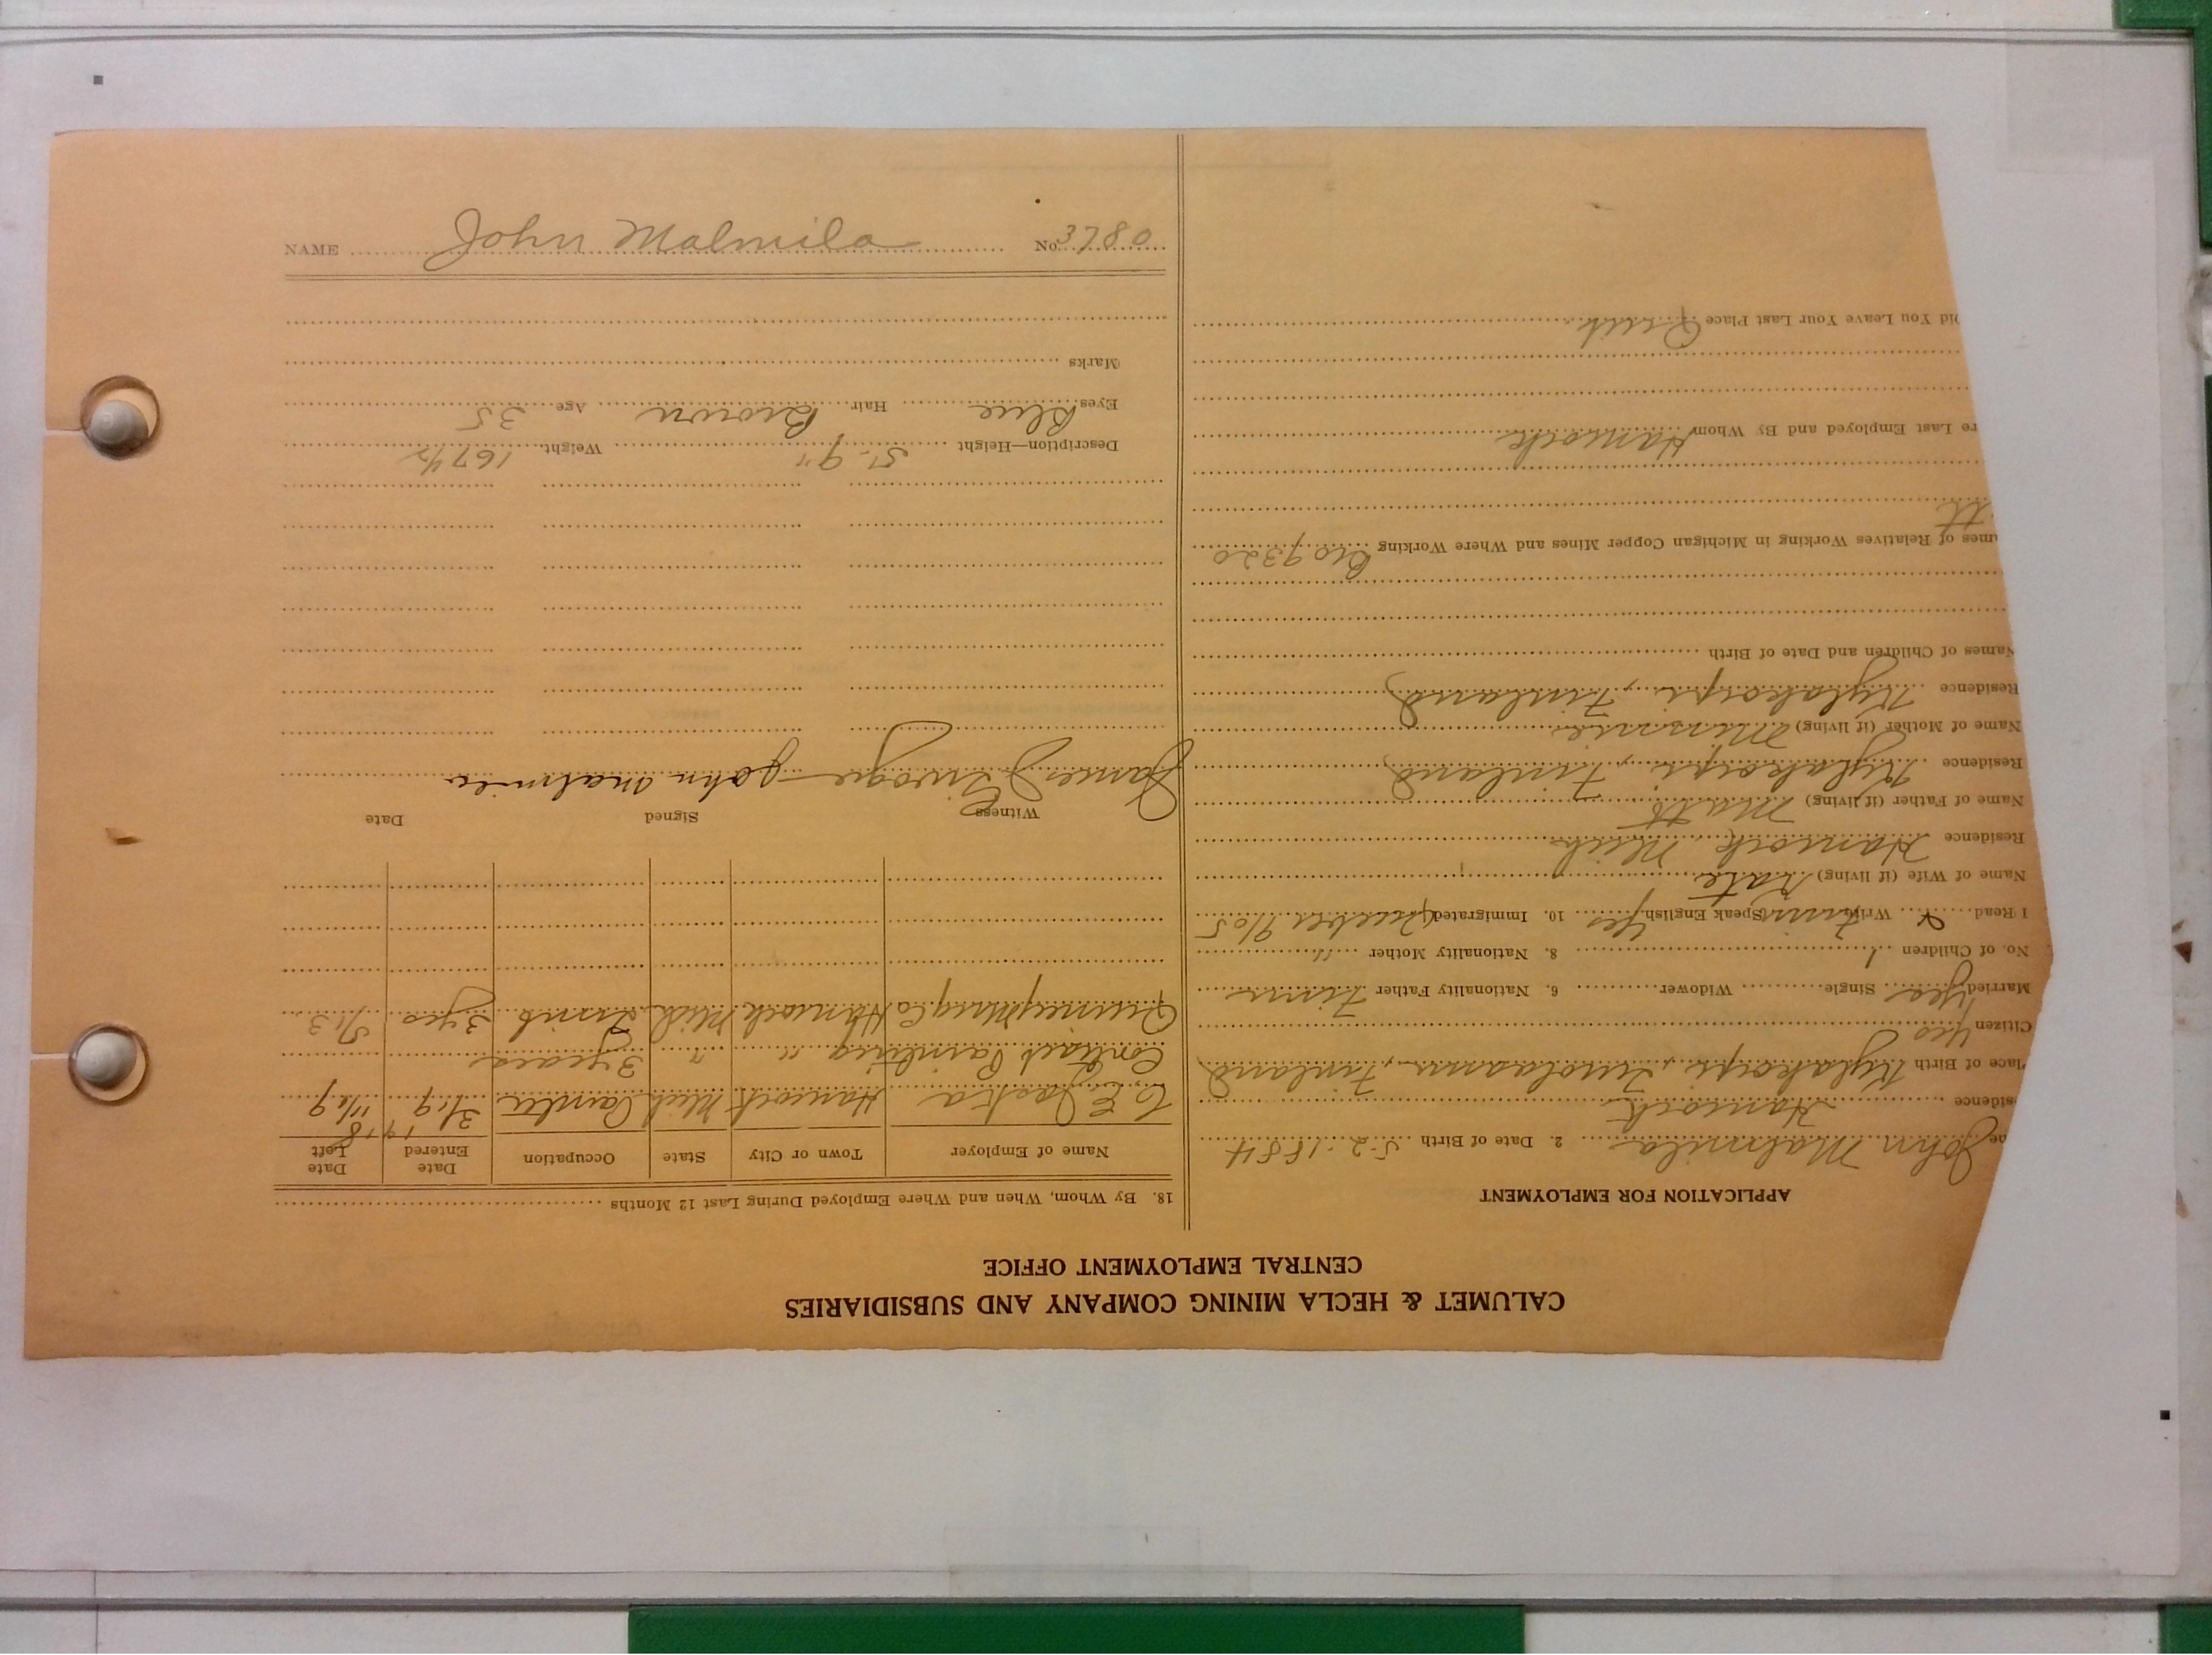 CALUMET & HECLA MINING COMPANY AND SUBSIDIARIES
CENTRAL EMPLOYMENT OFFICE
APPLICATION FOR EMPLOYMENT
John Malmila 2. Date of Birth 5-2-1884
sidence Hancock
Place of Birth Kylakorpi, Finland
Citizen Yes
Married Yes Single Widower 6. Nationality Father Finn
No. of Children 1 8. Nationality Mother "
I Read & Write Finn Speak English Yes 10. Immigrated 1905
Name of Wife (if living) Kate
Residence Hancock, Mich
Name of Father (if living) Matt
Residence Kylakorpi, Finland
Name of Mother (if living) Minnie
Residence Kylakorpi, Finland
Names of Children and Date of Birth
mes of Relatives Working in Michigan Copper Mines and Where Working
re Last Employed and By Whom Hancock
Did You Leave Your Last Place Quit
18. By Whom, When and Where Employed During Last 12 Months
Name of Employer Town or City State Occupation Date Entered Date Left
Hancock Mich Painter
Contract Painting " " 3 years
Quincy Mng Co Hancock Mich 3 yrs 5/13
Witness Signed Date
James John Malmila
Description—Height 5'-9" Weight 167 1/2
Eyes Blue Hair Brown Age 35
Marks
NAME John Malmila No. 3780